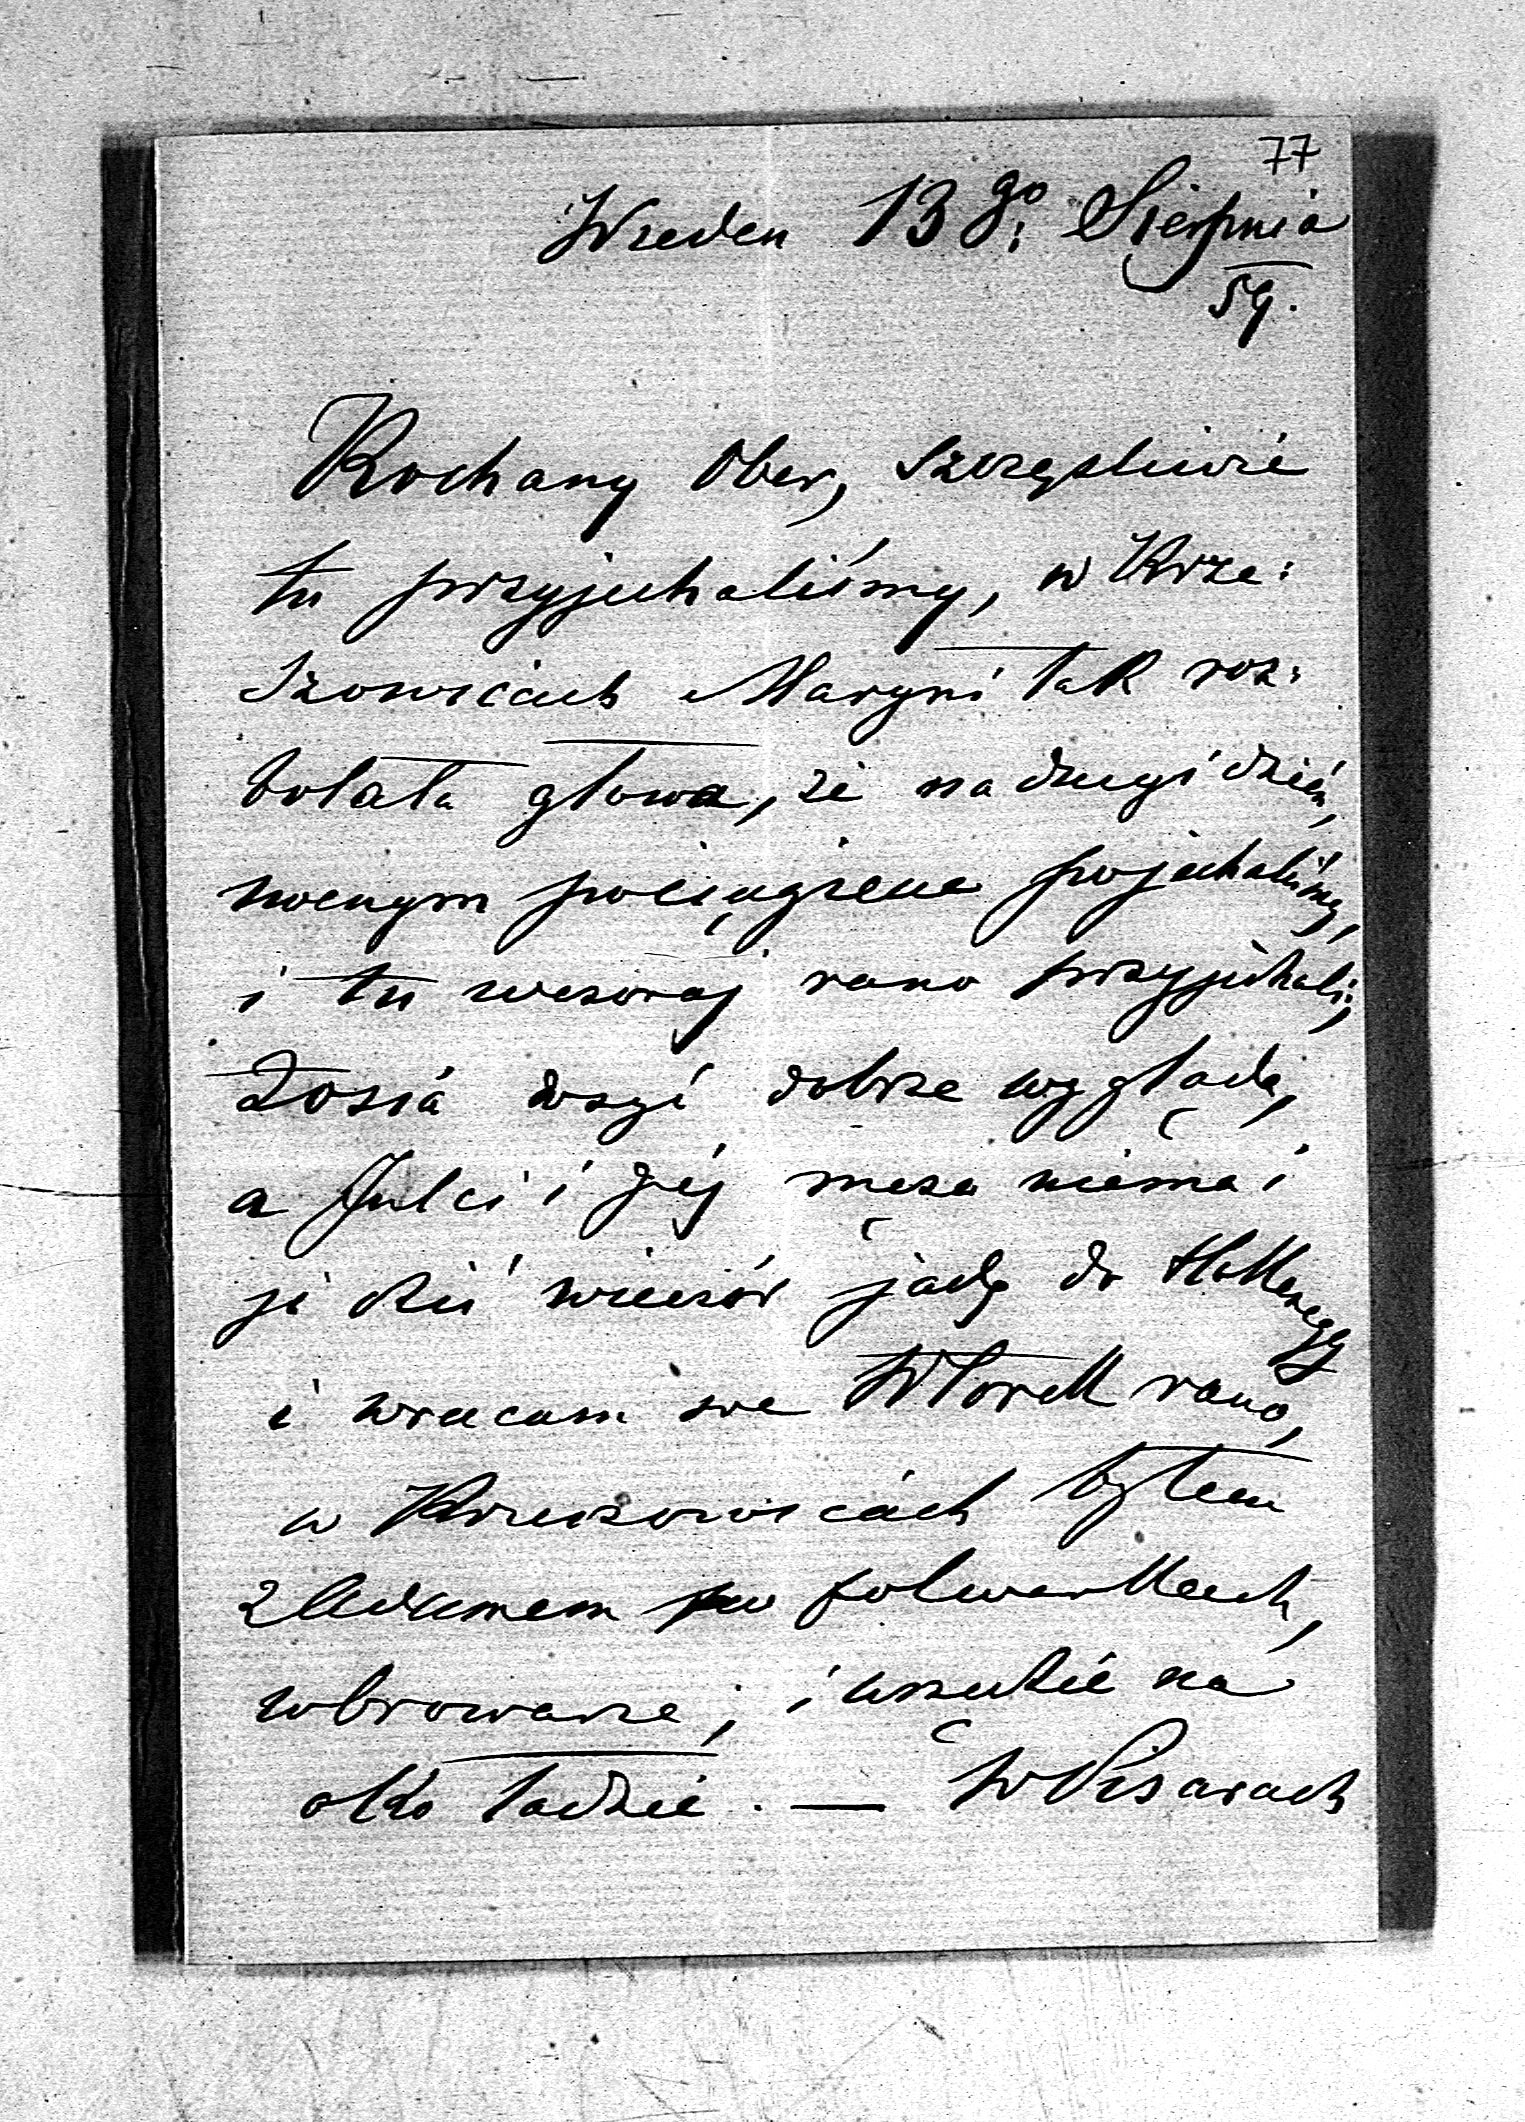 77
Wiedeń 13go: Sierpnia
59.
Kochany Ober, szczęśliwie
tu przyjechaliśmy, w Krze:
szowicach Maryni tak roz:
bolała głowa, że na drugi dzień,
nocnym pociągiem pojechaliśmy,
i tu wczoraj rano przyjechali;
Zosia dosyć dobrze wygląda,
a Julci i jéj męża niema i
ja dziś wieczór jadę do
i wracam we Wtorek rano,
w Krzeszowicach byłem
z Adamem po folwarkach,
w browarze, i wszędzie na
oko ładzie. — W Pisarach